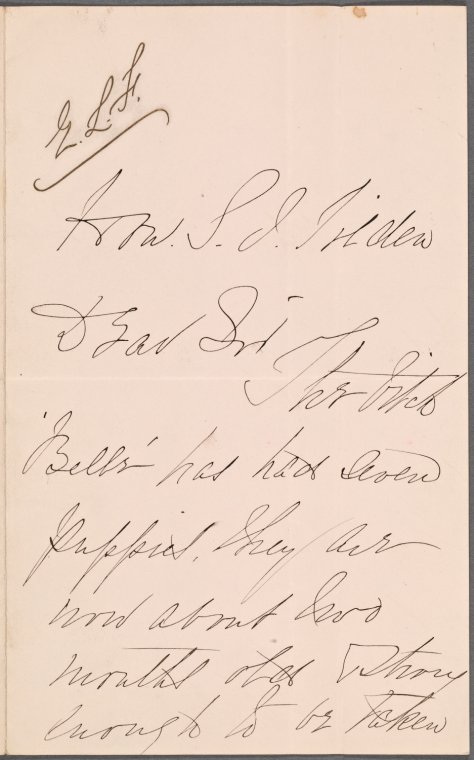 E. L. F.
Hon. S. J. Tilden
Dear Sir
The bitch
"Belle" has had seven
puppies, they are
now about two
months old & strong
enough to be taken